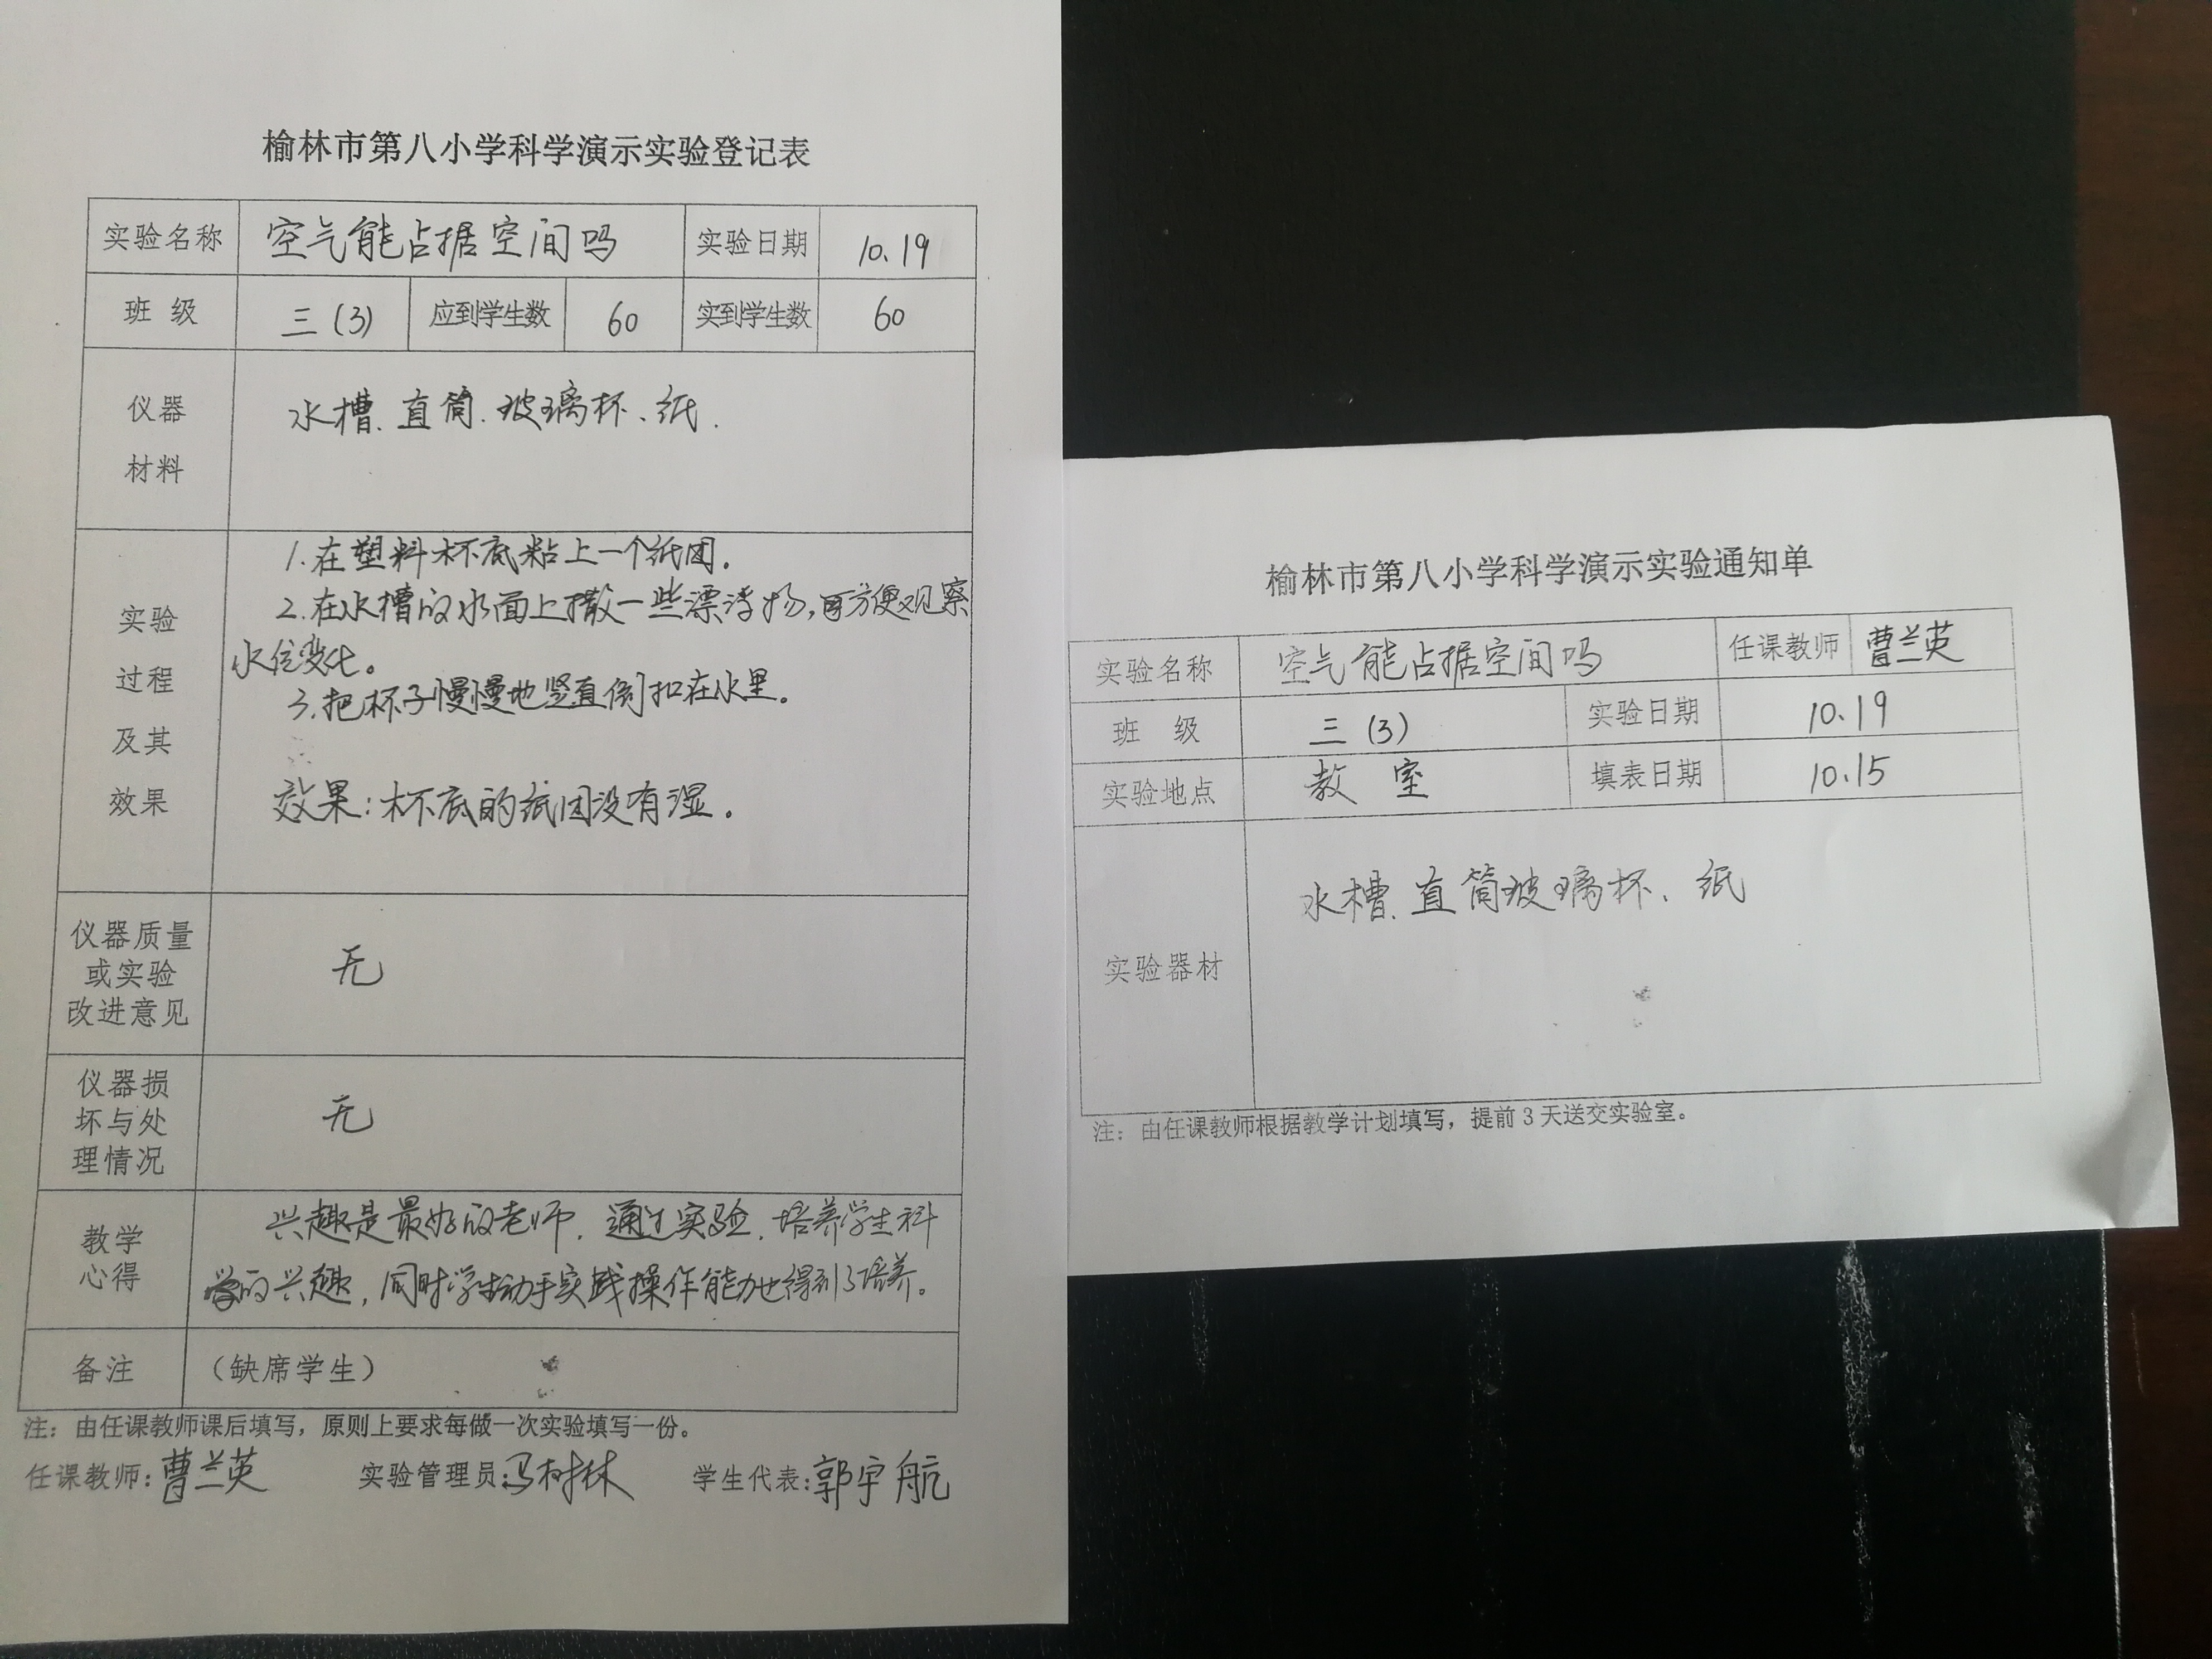 榆林市第八小学科学演示实验登记表
实验名称 空气能占据空间吗 实验日期 10.19
班 级 三(3) 应到学生数 60 实到学生数 60
仪器
材料
水槽、直筒、玻璃杯、纸.
实验
过程
及其
效果
1.在塑料杯底粘上一个纸团。
2.在水槽的水面上撒一些漂浮物,可方便观察
水位变化。
3.把杯子慢慢地竖直倒扣在水里。
效果:杯底的纸团没有湿。
仪器质量
或实验
改进意见
无
仪器损
坏与处
理情况
无
教学
心得
兴趣是最好的老师.通过实验.培养学生科
学的兴趣,同时学生动手实践操作能力也得到了培养。
备注 (缺席学生)
注:由任课教师课后填写,原则上要求每做一次实验填写一份。
任课教师:曹兰英 实验管理员:冯树林 学生代表:郭宇航
榆林市第八小学科学演示实验通知单
实验名称 空气能占据空间吗 任课教师 曹兰英
班 级 三(3) 实验日期 10.19
实验地点 教 室 填表日期 10.15
实验器材 水槽、直筒玻璃杯、纸
注:由任课教师根据教学计划填写,提前3天送交实验室。